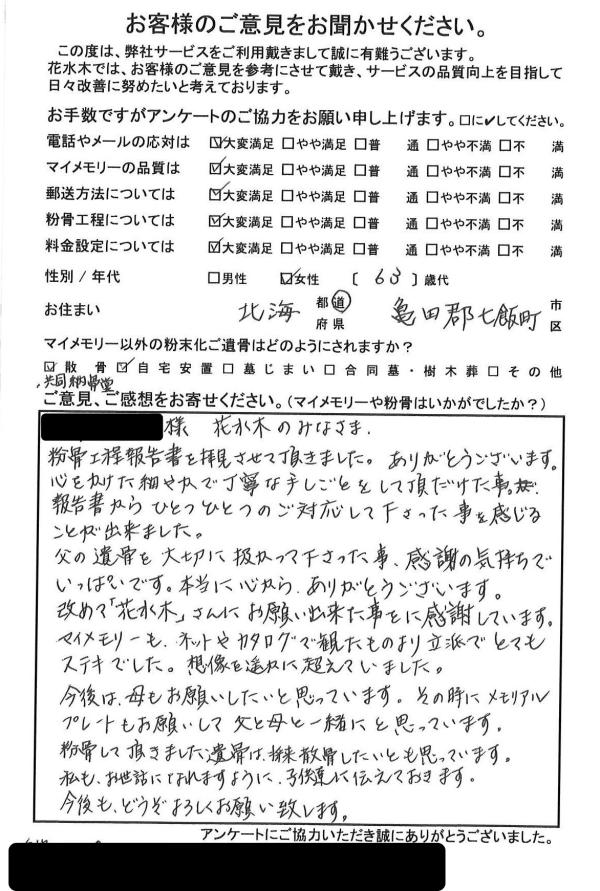 お客様のご意見をお聞かせください。
この度は、弊社サービスをご利用戴きまして誠に有難うございます。
花水木では、お客様のご意見を参考にさせて戴き、サービスの品質向上を目指して
日々改善に努めたいと考えております。
お手数ですがアンケートのご協力をお願い申し上げます。□に✔してください。
電話やメールの応対は ☑大変満足 □やや満足 □普 通 □やや不満 □不 満
マイメモリーの品質は ☑大変満足 □やや満足 □普 通 □やや不満 □不 満
郵送方法については ☑大変満足 □やや満足 □普 通 □やや不満 □不 満
粉骨工程については ☑大変満足 □やや満足 □普 通 □やや不満 □不 満
料金設定については ☑大変満足 □やや満足 □普 通 □やや不満 □不 満
性別 / 年代 □男性 ☑女性 〔 63 〕歳代
お住まい 北海 都道府県 亀田郡七飯町 市区
マイメモリー以外の粉末化ご遺骨はどのようにされますか？
☑散骨 ☑自宅安置 □墓じまい □合同墓・樹木葬 □その他
共同納骨堂
ご意見、ご感想をお寄せください。（マイメモリーや粉骨はいかがでしたか？）
様 花水木のみなさま.
粉骨工程報告書を拝見させて頂きました。ありがとうございます。
心をかけた細やかで丁寧な手しごとをして頂だけた事が
報告書からひとつひとつのご対応して下さった事を感じる
ことが出来ました。
父の遺骨を大切に扱かって下さった事、感謝の気持ちで
いっぱいです。本当に心から、ありがとうございます。
改めて「花水木」さんにお願い出来た事をに感謝しています。
マイメモリーも、ネットやカタログで観たものより立派でとても
ステキでした。想像を遥かに超えていました。
今後は、母もお願いしたいと思っています。その時にメモリアル
プレートもお願いして父と母と一緒にと思っています。
粉骨して頂きました遺骨は、将来散骨したいとも思っています。
私も、お世話になれますように、子供達に伝えておきます。
今後も、どうぞよろしくお願い致します。
アンケートにご協力いただき誠にありがとうございました。